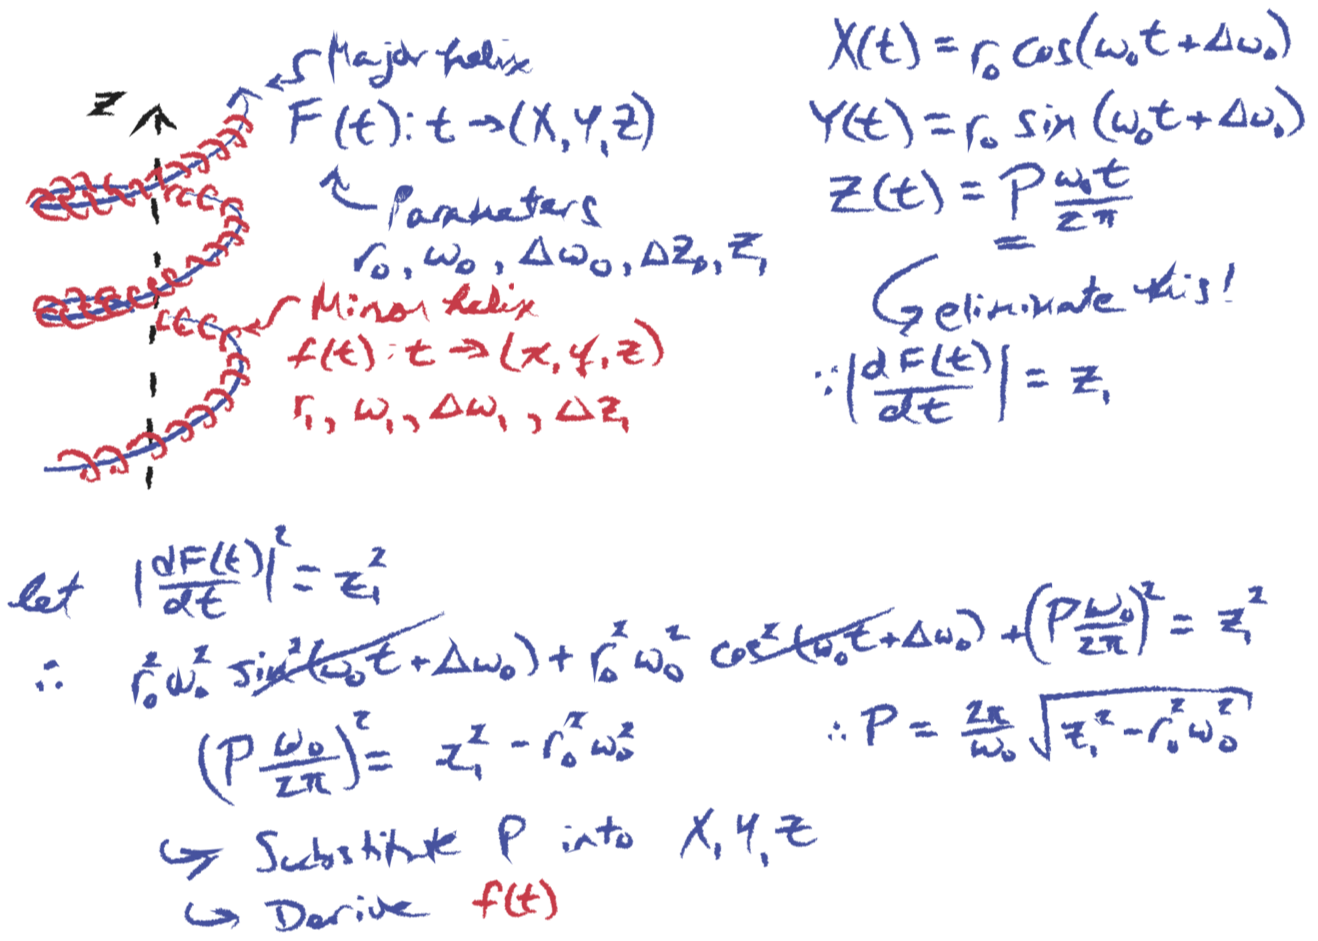 Major helix
Z
F(t): t → (X, Y, Z)
Parameters
r₀, ω₀, Δω₀, ΔZ₀, Z₁
Minor helix
f(t): t → (x, y, z)
r₁, ω₁, Δω₁, Δz₁
X(t) = r₀ cos(ω₀t + Δω₀)
Y(t) = r₀ sin(ω₀t + Δω₀)
Z(t) = P ω₀t / 2π
eliminate this!
∵ |dF(t)/dt| = z₁
let |dF(t)/dt|² = z₁²
∴ r₀²ω₀² sin²(ω₀t + Δω₀) + r₀²ω₀² cos²(ω₀t + Δω₀) + (P ω₀/2π)² = z₁²
(P ω₀/2π)² = z₁² - r₀²ω₀²
∴ P = 2π/ω₀ √(z₁² - r₀²ω₀²)
↪ Substitute P into X, Y, Z
↪ Derive f(t)